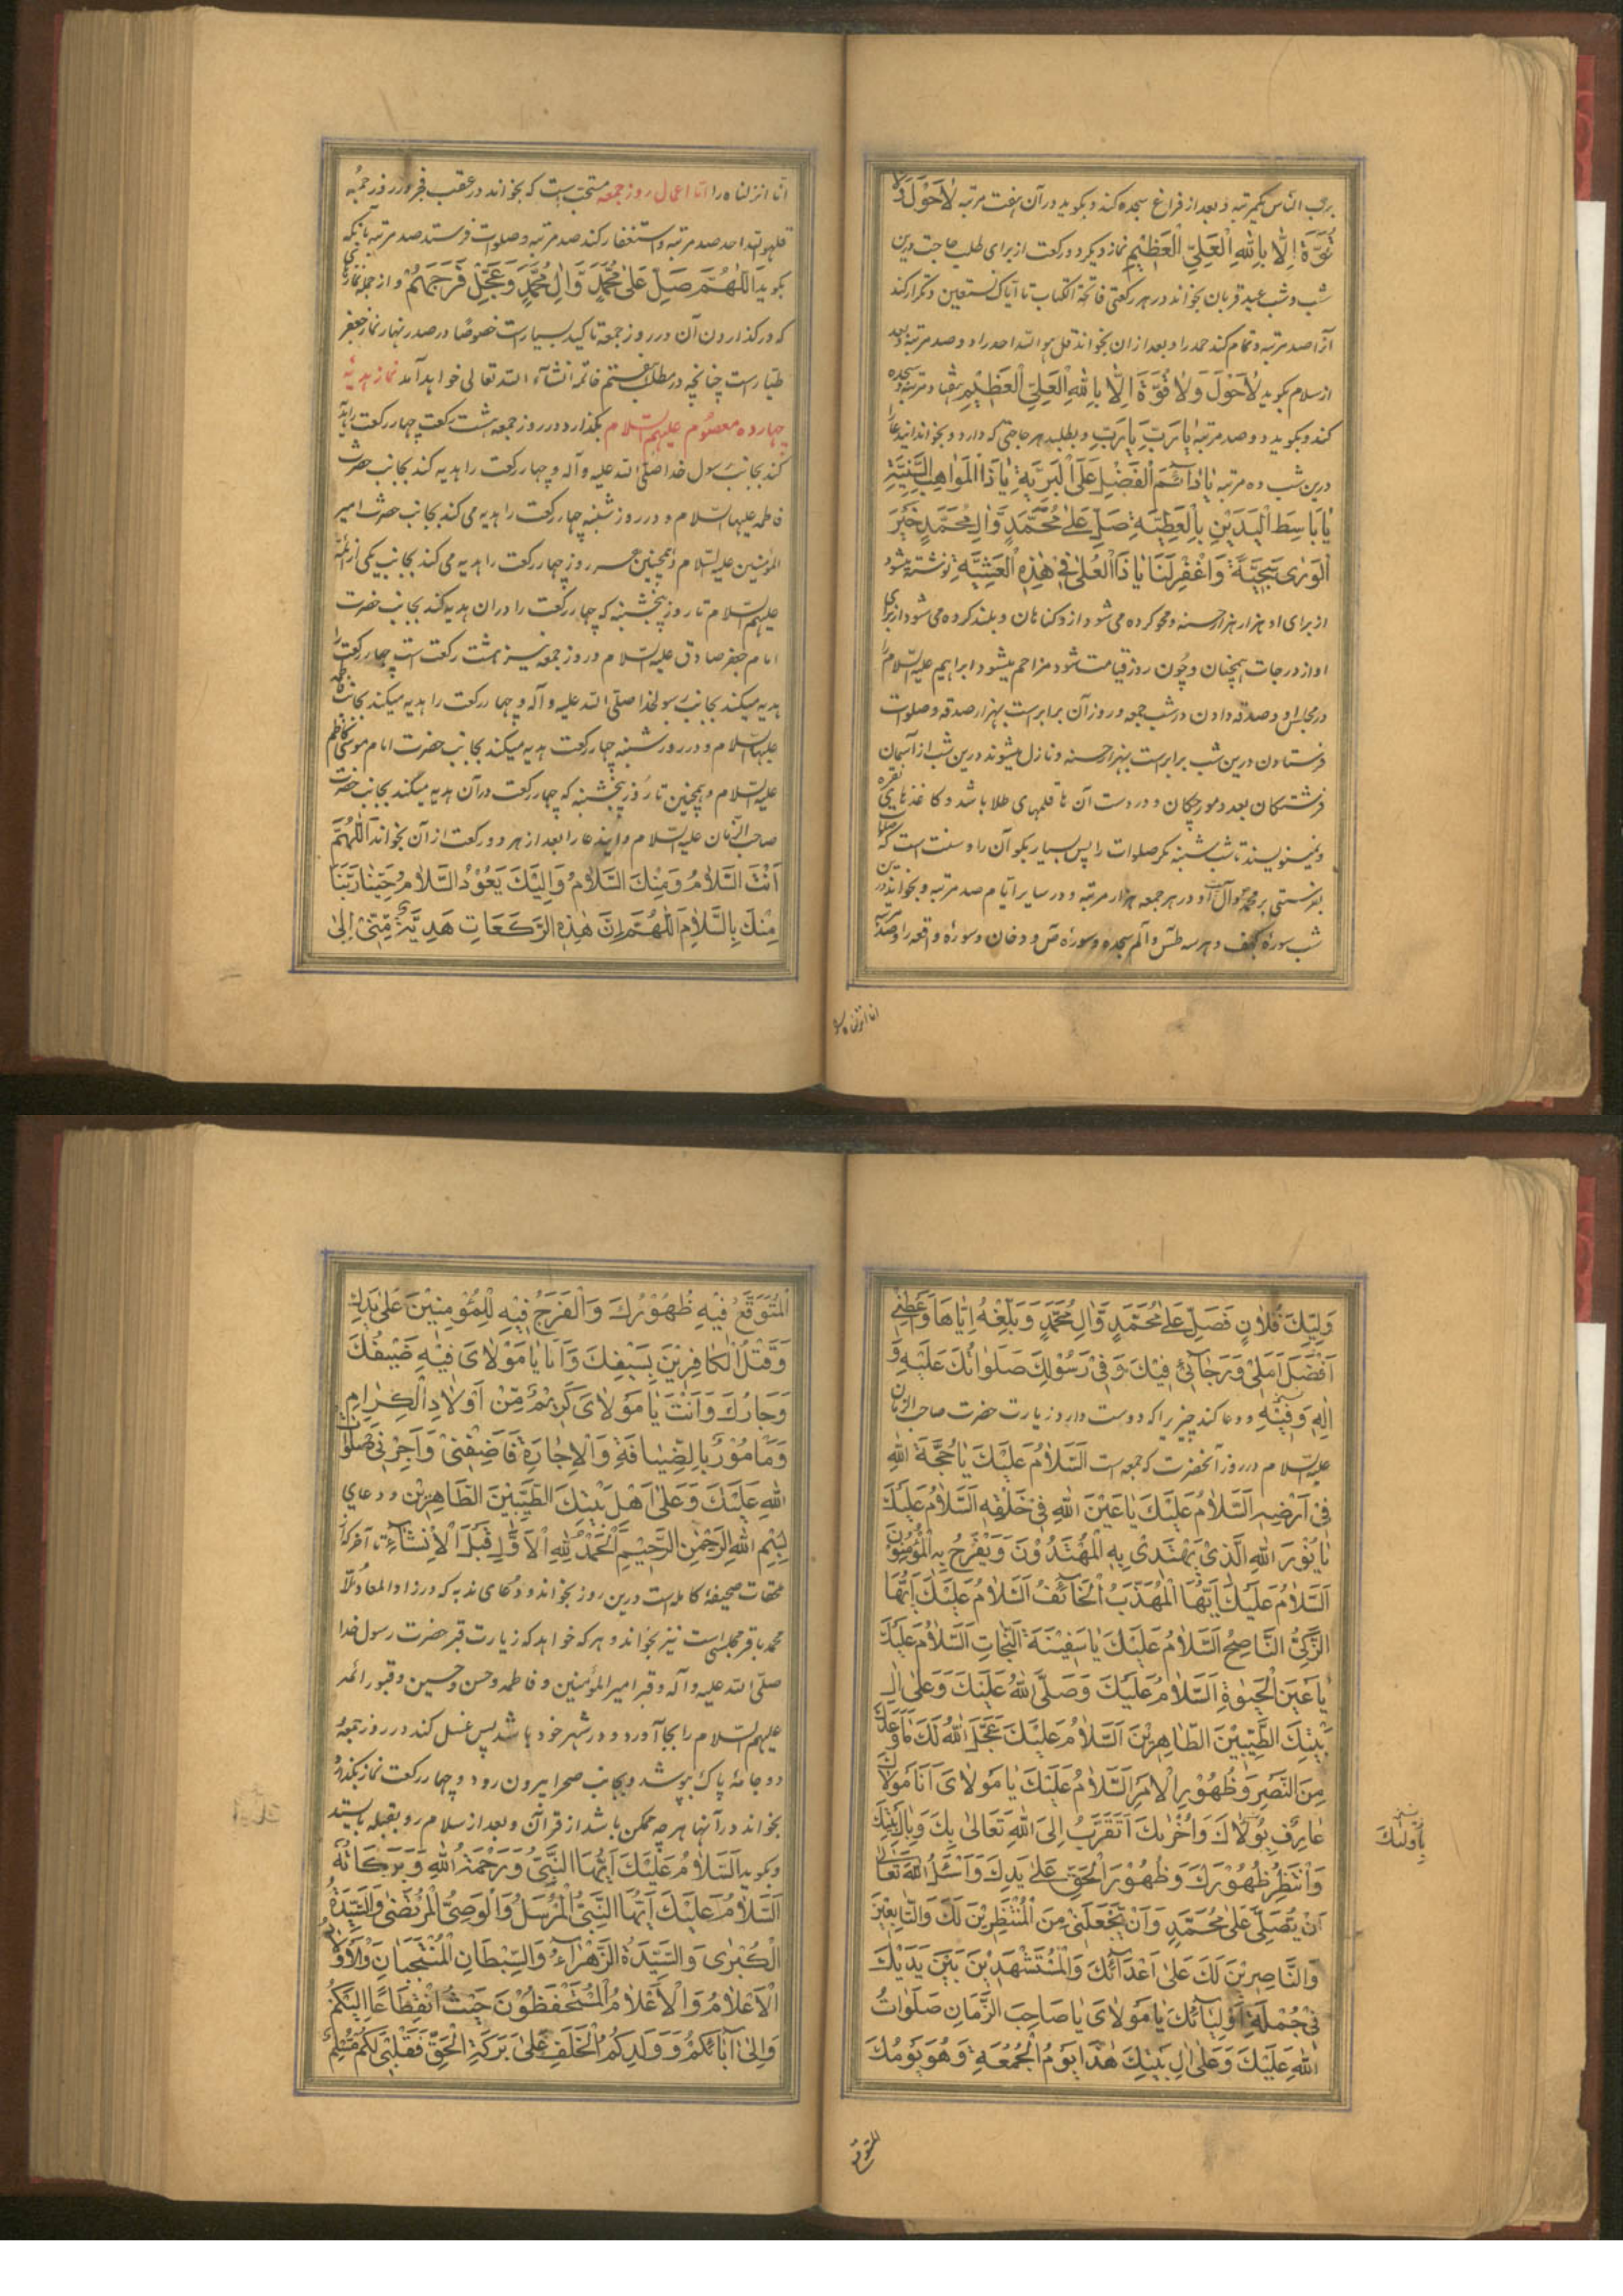 برب الناس یکمرتبه و بعد از فراغ سجده کند و بکوید در آن هفت مرتبه لٰاحَوْلَ وَلٰا
قُوَّةَ اِلّٰا بِاللّٰهِ الْعَلِیِّ الْعَظِیْمِ نماز دیکر دو رکعت از برای طلب حاجت درین
شب و شب عید قربان بخواند در هر رکعتی فاتحة الکتاب تا ایاک نستعین و تکرار کند
آنرا صد مرتبه و تمام کند حمد را و بعد از ان بخواند قل هو الله احد را دو صد مرتبه و بعد
از سلام بکوید لٰاحَوْلَ وَلٰا قُوَّةَ اِلّٰا بِاللّٰهِ الْعَلِیِّ الْعَظِیْمِ هفتاد مرتبه و سجده
کند و بکوید دو صد مرتبه یٰارَبِّ یٰارَبِّ و بطلبد هر حاجتی که دارد و بخواند ایندعا را
درین شب ده مرتبه یٰادٰائِمَ الْفَضْلِ عَلَی الْبَرِیَّةِ یٰاذَا الْمَوٰاهِبِ السَّنِیَّةِ
یٰابٰاسِطَ الْیَدَیْنِ بِالْعَطِیَّةِ صَلِّ عَلیٰ مُحَمَّدٍ وَّاٰلِ مُحَمَّدٍ خَیْرِ
الْوَرٰی سَجِیَّةً وَاغْفِرْ لَنٰا یٰا ذَا الْعُلیٰ فِیْ هٰذِهِ الْعَشِیَّةِ نوشته میشود
از برای او هزار هزار حسنه و محو کرده می شود از و کناهان و بلند کرده می شود از برای
او از درجات همچنان و چون روز قیامت شود مزاحم میشود ابراهیم علیه السّلام را
در مجلس او و صدقه دادن در شب جمعه و روز آن برابرست بهزار صدقه و صلوات
فرستادن درین شب برابرست بهزار حسنه و نازل میشوند درین شب از آسمان
فرشتکان بعدد مورچکان و در دست آن ها قلمهای طلا باشد و کاغذهای نقره
و نمینویسند تا شب شنبه مکر صلوات را پس بسیار بکو آن را و سنت است که صلوات
بفرستی بر محمد و آل او در هر جمعه هزار مرتبه و در سایر ایام صد مرتبه و بخواند در
شب سورهٔ کهف و هر سه طس و الم سجده و سورهٔ ص و دخان و سورهٔ واقعه را و صد مرتبه
انا انزلناه را
انّا انزلناه را امّا اعمال روز جمعه مستحب است که بخواند در عقب فجر روز جمعه
قلهو الله احد صد مرتبه و استغفار کند صد مرتبه و صلوات فرستد صد مرتبه بآنیکه
بکوید اَللّٰهُمَّ صَلِّ عَلیٰ مُحَمَّدٍ وَّاٰلِ مُحَمَّدٍ وَعَجِّلْ فَرَجَهُمْ و از جمله نمازها
که در کذاردن آن در روز جمعه تاکید بسیارست خصوصًا در صدر نهار نماز جعفر
طیارست چنانچه در مطلب هفتم خاتمه انشآء الله تعالی خواهد آمد نماز هدیهٔ
چهارده معصوم علیهم السّلام بکذارد در روز جمعه هشت رکعت چهار رکعت را هدیه
کند بجانب رسول خدا صلی الله علیه و آله و چهار رکعت را هدیه کند بجانب حضرت
فاطمه علیها السّلام و در روز شنبه چهار رکعت را هدیه می کند بجانب حضرت امیر
المؤمنین علیه السّلام و همچنین هر روز چهار رکعت را هدیه می کند بجانب یکی از ائمه
علیهم السّلام تا روز پنجشنبه که چهار رکعت را دران هدیه کند بجانب حضرت
امام جعفر صادق علیه السّلام و روز جمعه نیز هشت رکعت است چهار رکعت را
هدیه میکند بجانب رسولخدا صلّی الله علیه و آله و چهار رکعت را هدیه میکند بجانب فاطمه
علیها السّلام و در روز شنبه چهار رکعت هدیه میکند بجانب حضرت امام موسی کاظم
علیه السّلام و همچنین تا روز پنجشنبه که چهار رکعت در آن هدیه میکند بجانب حضرت
صاحب الزّمان علیه السّلام و ایندعا را بعد از هر دو رکعت از آن بخواند اَللّٰهُمَّ
اَنْتَ السَّلٰامُ وَمِنْكَ السَّلٰامُ وَاِلَیْكَ یَعُوْدُ السَّلٰامُ حَیِّنٰا رَبَّنٰا
مِنْكَ بِالسَّلٰامِ اَللّٰهُمَّ اِنَّ هٰذِهِ الرَّكَعٰاتِ هَدِیَّةٌ مِّنِّیْ اِلیٰ
وَلِیِّكَ فُلٰانٍ فَصَلِّ عَلیٰ مُحَمَّدٍ وَّاٰلِ مُحَمَّدٍ وَبَلِّغْهُ اِیّٰاهَا وَاَعْطِنِیْ
اَفْضَلَ اَمَلِیْ وَرَجٰائِیْ فِیْكَ وَفِیْ رَسُوْلِكَ صَلَوٰاتُكَ عَلَیْهِ وَ
اٰلِهِ وَفِیْهِ و دعا کند چیزیرا که دوست دارد زیارت حضرت صاحب الزمان
علیه السّلام در روز آنحضرت که جمعه است اَلسَّلٰامُ عَلَیْكَ یٰا حُجَّةَ اللّٰهِ
فِیْ اَرْضِهِ اَلسَّلٰامُ عَلَیْكَ یٰاعَیْنَ اللّٰهِ فِیْ خَلْقِهِ اَلسَّلٰامُ عَلَیْكَ
یٰانُوْرَ اللّٰهِ الَّذِیْ یَهْتَدِیْ بِهِ الْمُهْتَدُوْنَ وَیُفَرَّجُ بِهِ الْمُؤْمِنُوْنَ
اَلسَّلٰامُ عَلَیْكَ اَیُّهَا الْمُهَذَّبُ الْخٰائِفُ اَلسَّلٰامُ عَلَیْكَ اَیُّهَا
الزَّكِیُّ النّٰاصِحُ اَلسَّلٰامُ عَلَیْكَ یٰاسَفِیْنَةَ النَّجٰاتِ اَلسَّلٰامُ عَلَیْكَ
یٰاعَیْنَ الْحَیٰوةِ اَلسَّلٰامُ عَلَیْكَ وَصَلَّی اللّٰهُ عَلَیْكَ وَعَلیٰ اٰلِ
بَیْتِكَ الطَّیِّبِیْنَ الطّٰاهِرِیْنَ اَلسَّلٰامُ عَلَیْكَ عَجَّلَ اللّٰهُ لَكَ مٰاوَعَدَكَ
مِنَ النَّصْرِ وَظُهُوْرِ الْاَمْرِ اَلسَّلٰامُ عَلَیْكَ یٰا مَوْلٰایَ اَنَا مَوْلٰاكَ
عٰارِفٌ بِوُلٰاكَ وَاُخْرٰیكَ اَتَقَرَّبُ اِلَی اللّٰهِ تَعٰالیٰ بِكَ وَبِاٰلِ بَیْتِكَ
وَاَنْتَظِرُ ظُهُوْرَكَ وَظُهُوْرَ الْحَقِّ عَلیٰ یَدِكَ وَاَسْئَلُ اللّٰهَ تَعٰالیٰ
اَنْ یُصَلِّیَ عَلیٰ مُحَمَّدٍ وَاَنْ یَجْعَلَنِیْ مِنَ الْمُنْتَظِرِیْنَ لَكَ وَالتّٰابِعِیْنَ
وَالنّٰاصِرِیْنَ لَكَ عَلیٰ اَعْدٰائِكَ وَالْمُسْتَشْهَدِیْنَ بَیْنَ یَدَیْكَ
فِیْ جُمْلَةِ اَوْلِیٰائِكَ یٰا مَوْلٰایَ یٰا صٰاحِبَ الزَّمٰانِ صَلَوٰاتُ
اللّٰهِ عَلَیْكَ وَعَلیٰ اٰلِ بَیْتِكَ هٰذَا یَوْمُ الْجُمُعَةِ وَهُوَ یَوْمُكَ
المتوقع
الْمُتَوَقَّعُ فِیْهِ ظُهُوْرُكَ وَالْفَرَجُ فِیْهِ لِلْمُؤْمِنِیْنَ عَلیٰ یَدِكَ
وَقَتْلُ الْكٰافِرِیْنَ بِسَیْفِكَ وَاَنَا یٰا مَوْلٰایَ فِیْهِ ضَیْفُكَ
وَجٰارُكَ وَاَنْتَ یٰا مَوْلٰایَ كَرِیْمٌ مِّنْ اَوْلٰادِ الْكِرٰامِ
وَمٰامُوْرٌ بِالضِّیٰافَةِ وَالْاِجٰارَةِ فَاَضِفْنِیْ وَاَجِرْنِیْ صَلَوٰاتُ
اللّٰهِ عَلَیْكَ وَعَلیٰ اَهْلِ بَیْتِكَ الطَّیِّبِیْنَ الطّٰاهِرِیْنَ و دعای
بِسْمِ اللّٰهِ الرَّحْمٰنِ الرَّحِیْمِ اَلْحَمْدُ لِلّٰهِ الْاَوَّلِ قَبْلَ الْاِنْشٰاءِ تا آخر که از
ملحقات صحیفهٔ کامله است درین روز بخواند و دعای ندبه که در زاد المعاد ملّا
محمد باقر مجلسی است نیز بخواند و هر که خواهد که زیارت قبر حضرت رسول خدا
صلّی الله علیه و آله و قبر امیر المؤمنین و فاطمه و حسن و حسین و قبور ائمه
علیهم السّلام را بجا آورد و در شهر خود باشد پس غسل کند در روز جمعه
دو جامهٔ پاک بپوشد و بجانب صحرا بیرون رود و چهار رکعت نماز بکذارد
بخواند در آنها هر چه ممکن باشد از قرآن و بعد از سلام رو بقبله بایستد
و بکوید اَلسَّلٰامُ عَلَیْكَ اَیُّهَا النَّبِیُّ وَرَحْمَةُ اللّٰهِ وَبَرَكٰاتُهُ
اَلسَّلٰامُ عَلَیْكَ اَیُّهَا النَّبِیُّ الْمُرْسَلُ وَالْوَصِیُّ الْمُرْتَضیٰ وَالسَّیِّدَةُ
الْكُبْرٰی وَالسَّیِّدَةُ الزَّهْرٰاءُ وَالسِّبْطٰانِ الْمُنْتَجَبٰانِ وَالْاَوْلٰادُ
الْاَعْلٰامُ وَالْاَعْلٰامُ الْمُسْتَحْفَظُوْنَ جِئْتُ انْقِطٰاعًا اِلَیْكُمْ
وَاِلیٰ اٰبٰائِكُمْ وَوَلَدِكُمُ الْخَلَفِ عَلیٰ بَرَكَةِ الْحَقِّ فَقَلْبِیْ لَكُمْ مُسَلِّمٌ